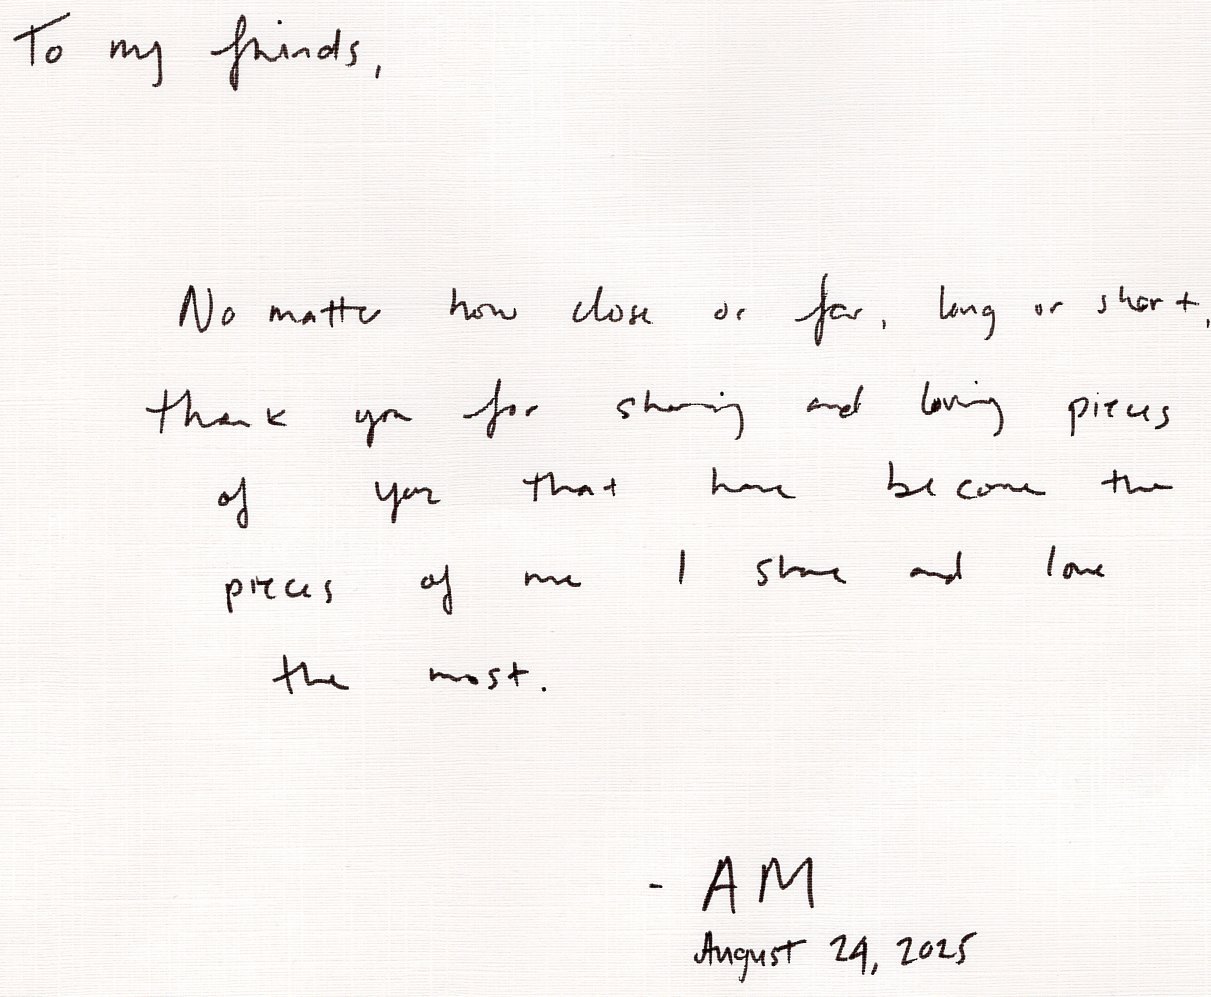 To my friends,
No matter how close or far, long or short,
thank you for sharing and loving pieces
of you that have become the
pieces of me I share and love
the most.
- AM
August 24, 2025